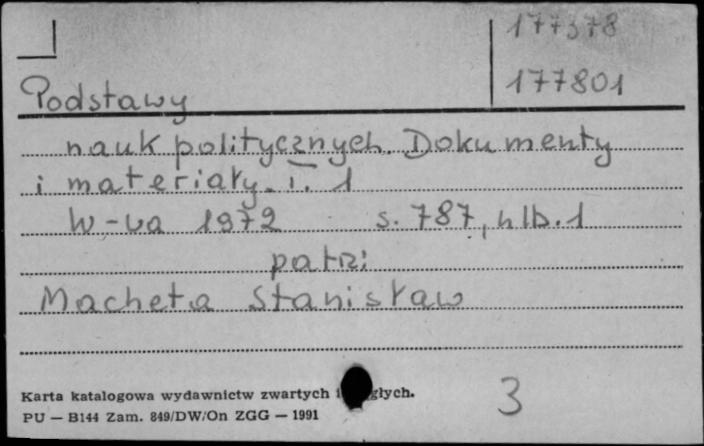 177378
177801
Podstawy
nauk politycznych. Dokumenty
i materiały. T. 1
W-wa 1972 s. 787, nlb. 1
patrz:
Macheta Stanisław
Karta katalogowa wydawnictw zwartych i ciągłych.
PU — B144 Zam. 849/DW/On ZGG — 1991
3